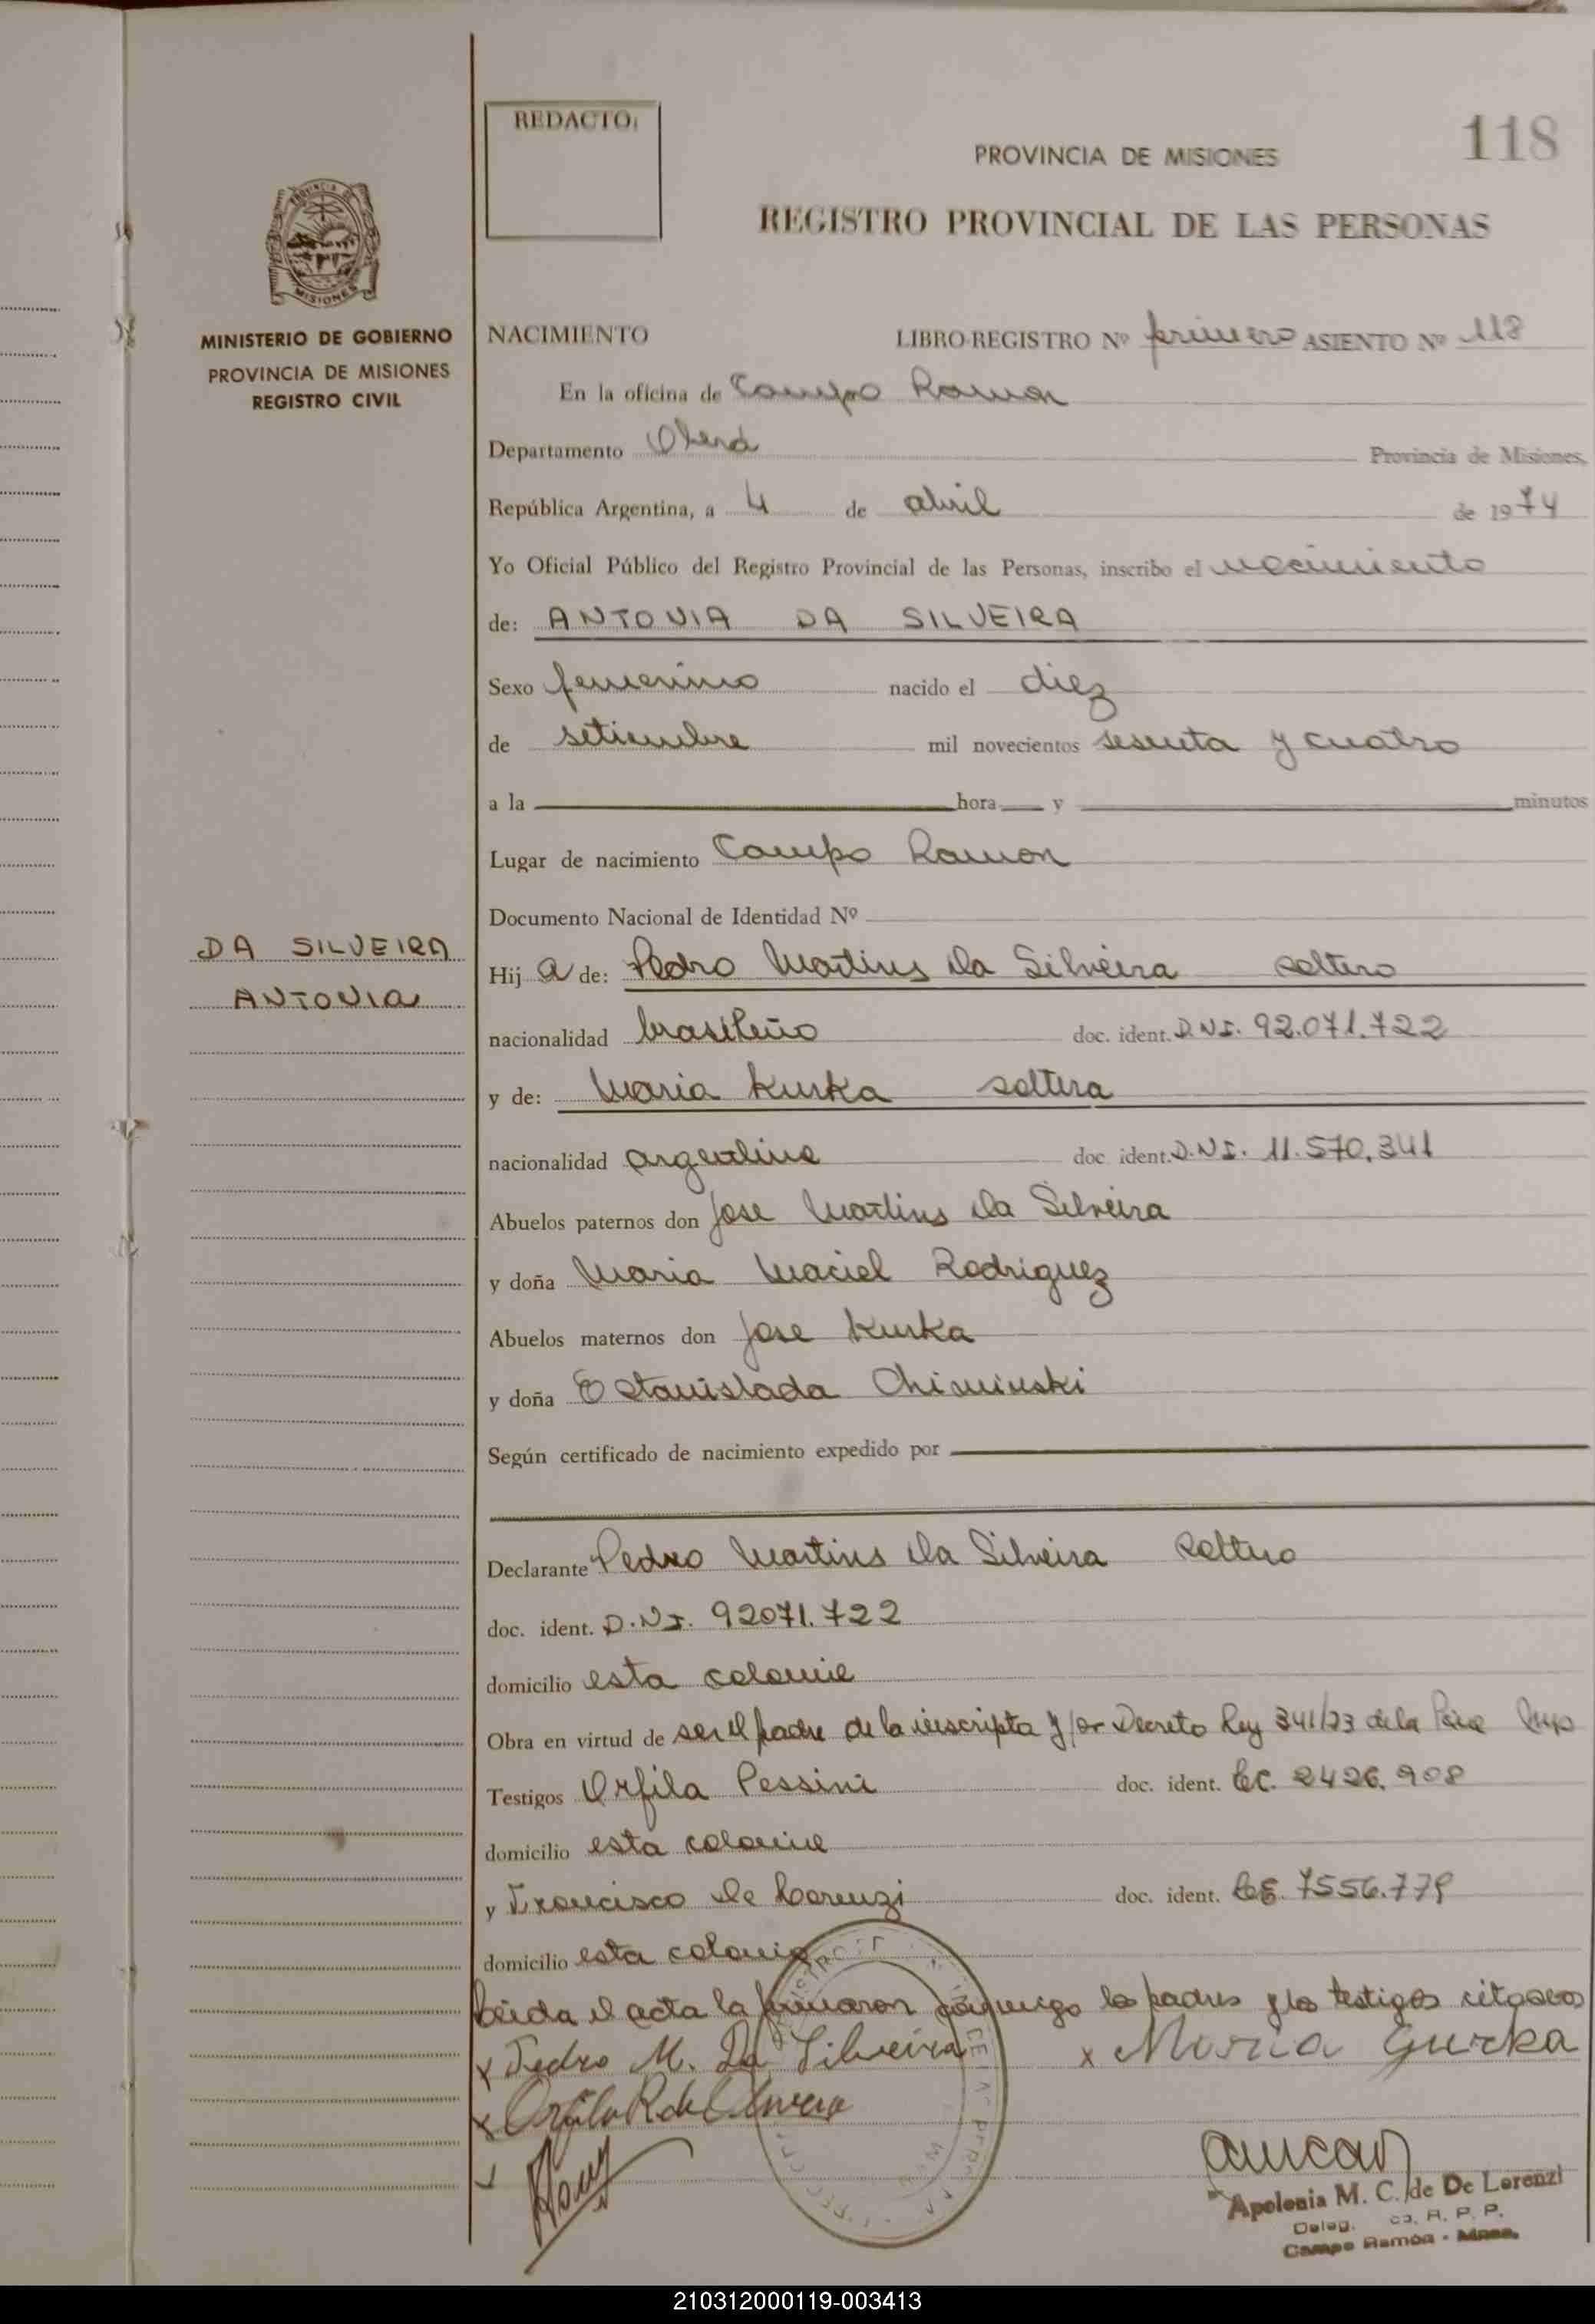 REDACTO:
118
PROVINCIA DE MISIONES
REGISTRO PROVINCIAL DE LAS PERSONAS
MISIONES
MINISTERIO DE GOBIERNO
PROVINCIA DE MISIONES
REGISTRO CIVIL
NACIMIENTO LIBRO-REGISTRO Nº primero ASIENTO Nº 118
En la oficina de Campo Ramon
Departamento Oberá Provincia de Misiones,
República Argentina, a 4 de abril de 1974
Yo Oficial Público del Registro Provincial de las Personas, inscribo el nacimiento
de: ANTONIA DA SILVEIRA
Sexo femenino nacido el diez
de setiembre mil novecientos sesenta y cuatro
a la hora y minutos
Lugar de nacimiento Campo Ramon
Documento Nacional de Identidad Nº
DA SILVEIRA
ANTONIA
Hij a de: Pedro Martins Da Silveira soltero
nacionalidad brasileño doc. ident. D.N.I. 92.071.722
y de: Maria Kurka soltera
nacionalidad argentina doc. ident. D.N.I. 11.570.341
Abuelos paternos don Jose Martins Da Silveira
y doña Maria Maciel Rodriguez
Abuelos maternos don Jose Kurka
y doña Estanislada Chiminski
Según certificado de nacimiento expedido por
Declarante Pedro Martins Da Silveira soltero
doc. ident. D.N.I. 92071.722
domicilio esta colonia
Obra en virtud de ser el padre de la inscripta y por Decreto Ley 341/73 de la
Testigos Orfila Pessini doc. ident. LC. 2426.908
domicilio esta colonia
y Francisco De Lorenzi doc. ident. LE. 7556.779
domicilio esta colonia
Leida el acta la firmaron conmigo los padres y los testigos citados
x Pedro M. Da Silveira x Maria Gurka
x Orfila
Apolonia M. C. de De Lorenzi
Deleg. R. P. P.
Campo Ramón - Mnes.
210312000119-003413